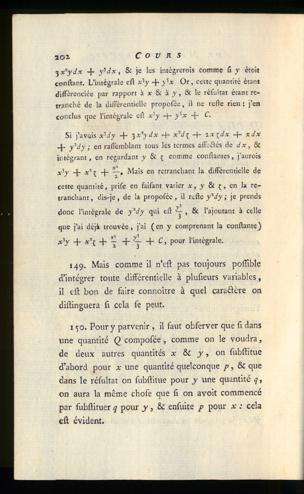 202 COURS
3x²ydx + y³dx, & je les intégrerois comme si y étoit
constant. L'intégrale est x³y + y³x. Or, cette quantité étant
différenciée par rapport à x & à y, & le résultat étant re-
tranché de la différentielle proposée, il ne reste rien : j'en
conclus que l'intégrale est x³y + y³x + C.
Si j'avois x³dy + 3x²ydx + x²dz + 2xzdx + xdx
+ y²dy; en rassemblant tous les termes affectés de dx, &
intégrant, en regardant y & z comme constantes, j'aurois
x³y + x²z + x²/2. Mais en retranchant la différentielle de
cette quantité, prise en faisant varier x, y & z, en la re-
tranchant, dis-je, de la proposée, il reste y²dy; je prends
donc l'intégrale de y²dy qui est y³/3, & l'ajoutant à celle
que j'ai déjà trouvée, j'ai (en y comprenant la constante)
x³y + x²z + x²/2 + y³/3 + C, pour l'intégrale.
149. Mais comme il n'est pas toujours possible
d'intégrer toute différentielle à plusieurs variables,
il est bon de faire connoître à quel caractère on
distinguera si cela se peut.
150. Pour y parvenir, il faut observer que si dans
une quantité Q composée, comme on le voudra,
de deux autres quantités x & y, on substitue
d'abord pour x une quantité quelconque p, & que
dans le résultat on substitue pour y une quantité q,
on aura la même chose que si on avoit commencé
par substituer q pour y, & ensuite p pour x : cela
est évident.